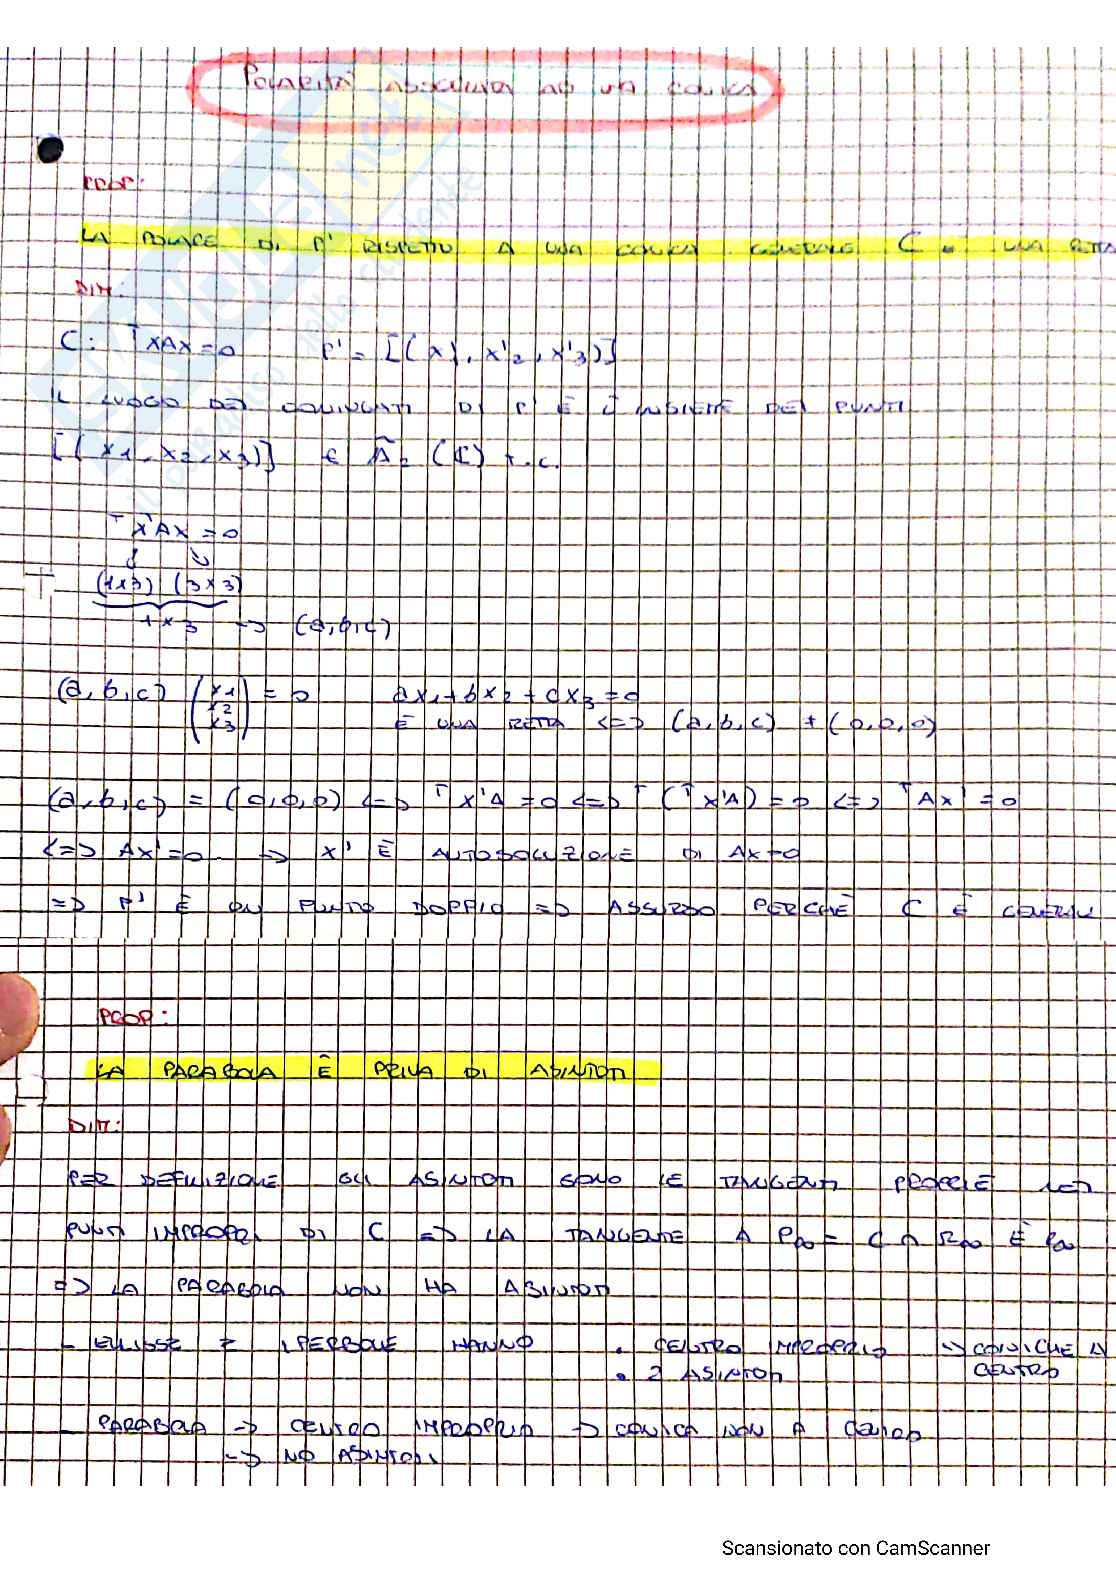 POLARITÀ ASSOCIATA AD UNA CONICA
PROP:
LA POLARE DI P' RISPETTO A UNA CONICA GENERALE C È UNA RETTA
DIM.
C: ᵀXAX=0 P' = [(x'1, x'2, x'3)]
IL LUOGO DEI CONIUGATI DI P' È L'INSIEME DEI PUNTI
[(x1, x2, x3)] ∈ Ã2 (C) t.c.
ᵀX'AX=0
(1x3) (3x3)
1x3 -> (a,b,c)
(a,b,c) (x1 x2 x3) = 0 ax1+bx2+cx3=0
È UNA RETTA <=> (a,b,c) ≠ (0,0,0)
(a,b,c) = (0,0,0) <=> ᵀX'A=0 <=> ᵀ(ᵀX'A)=0 <=> ᵀAX'=0
<=> AX'=0 -> X' È AUTOSOLUZIONE DI AX=0
=> P' È UN PUNTO DOPPIO => ASSURDO PERCHÉ C È GENERALE
PROP:
LA PARABOLA È PRIVA DI ASINTOTI
DIM:
PER DEFINIZIONE GLI ASINTOTI SONO LE TANGENTI PROPRIE NEI
PUNTI IMPROPRI DI C => LA TANGENTE A P∞ = C ∩ R∞ È R∞
=> LA PARABOLA NON HA ASINTOTI
- ELLISSE E IPERBOLE HANNO • CENTRO IMPROPRIO -> CONICHE A
• 2 ASINTOTI CENTRO
- PARABOLA -> CENTRO IMPROPRIO -> CONICA NON A CENTRO
-> NO ASINTOTI
Scansionato con CamScanner